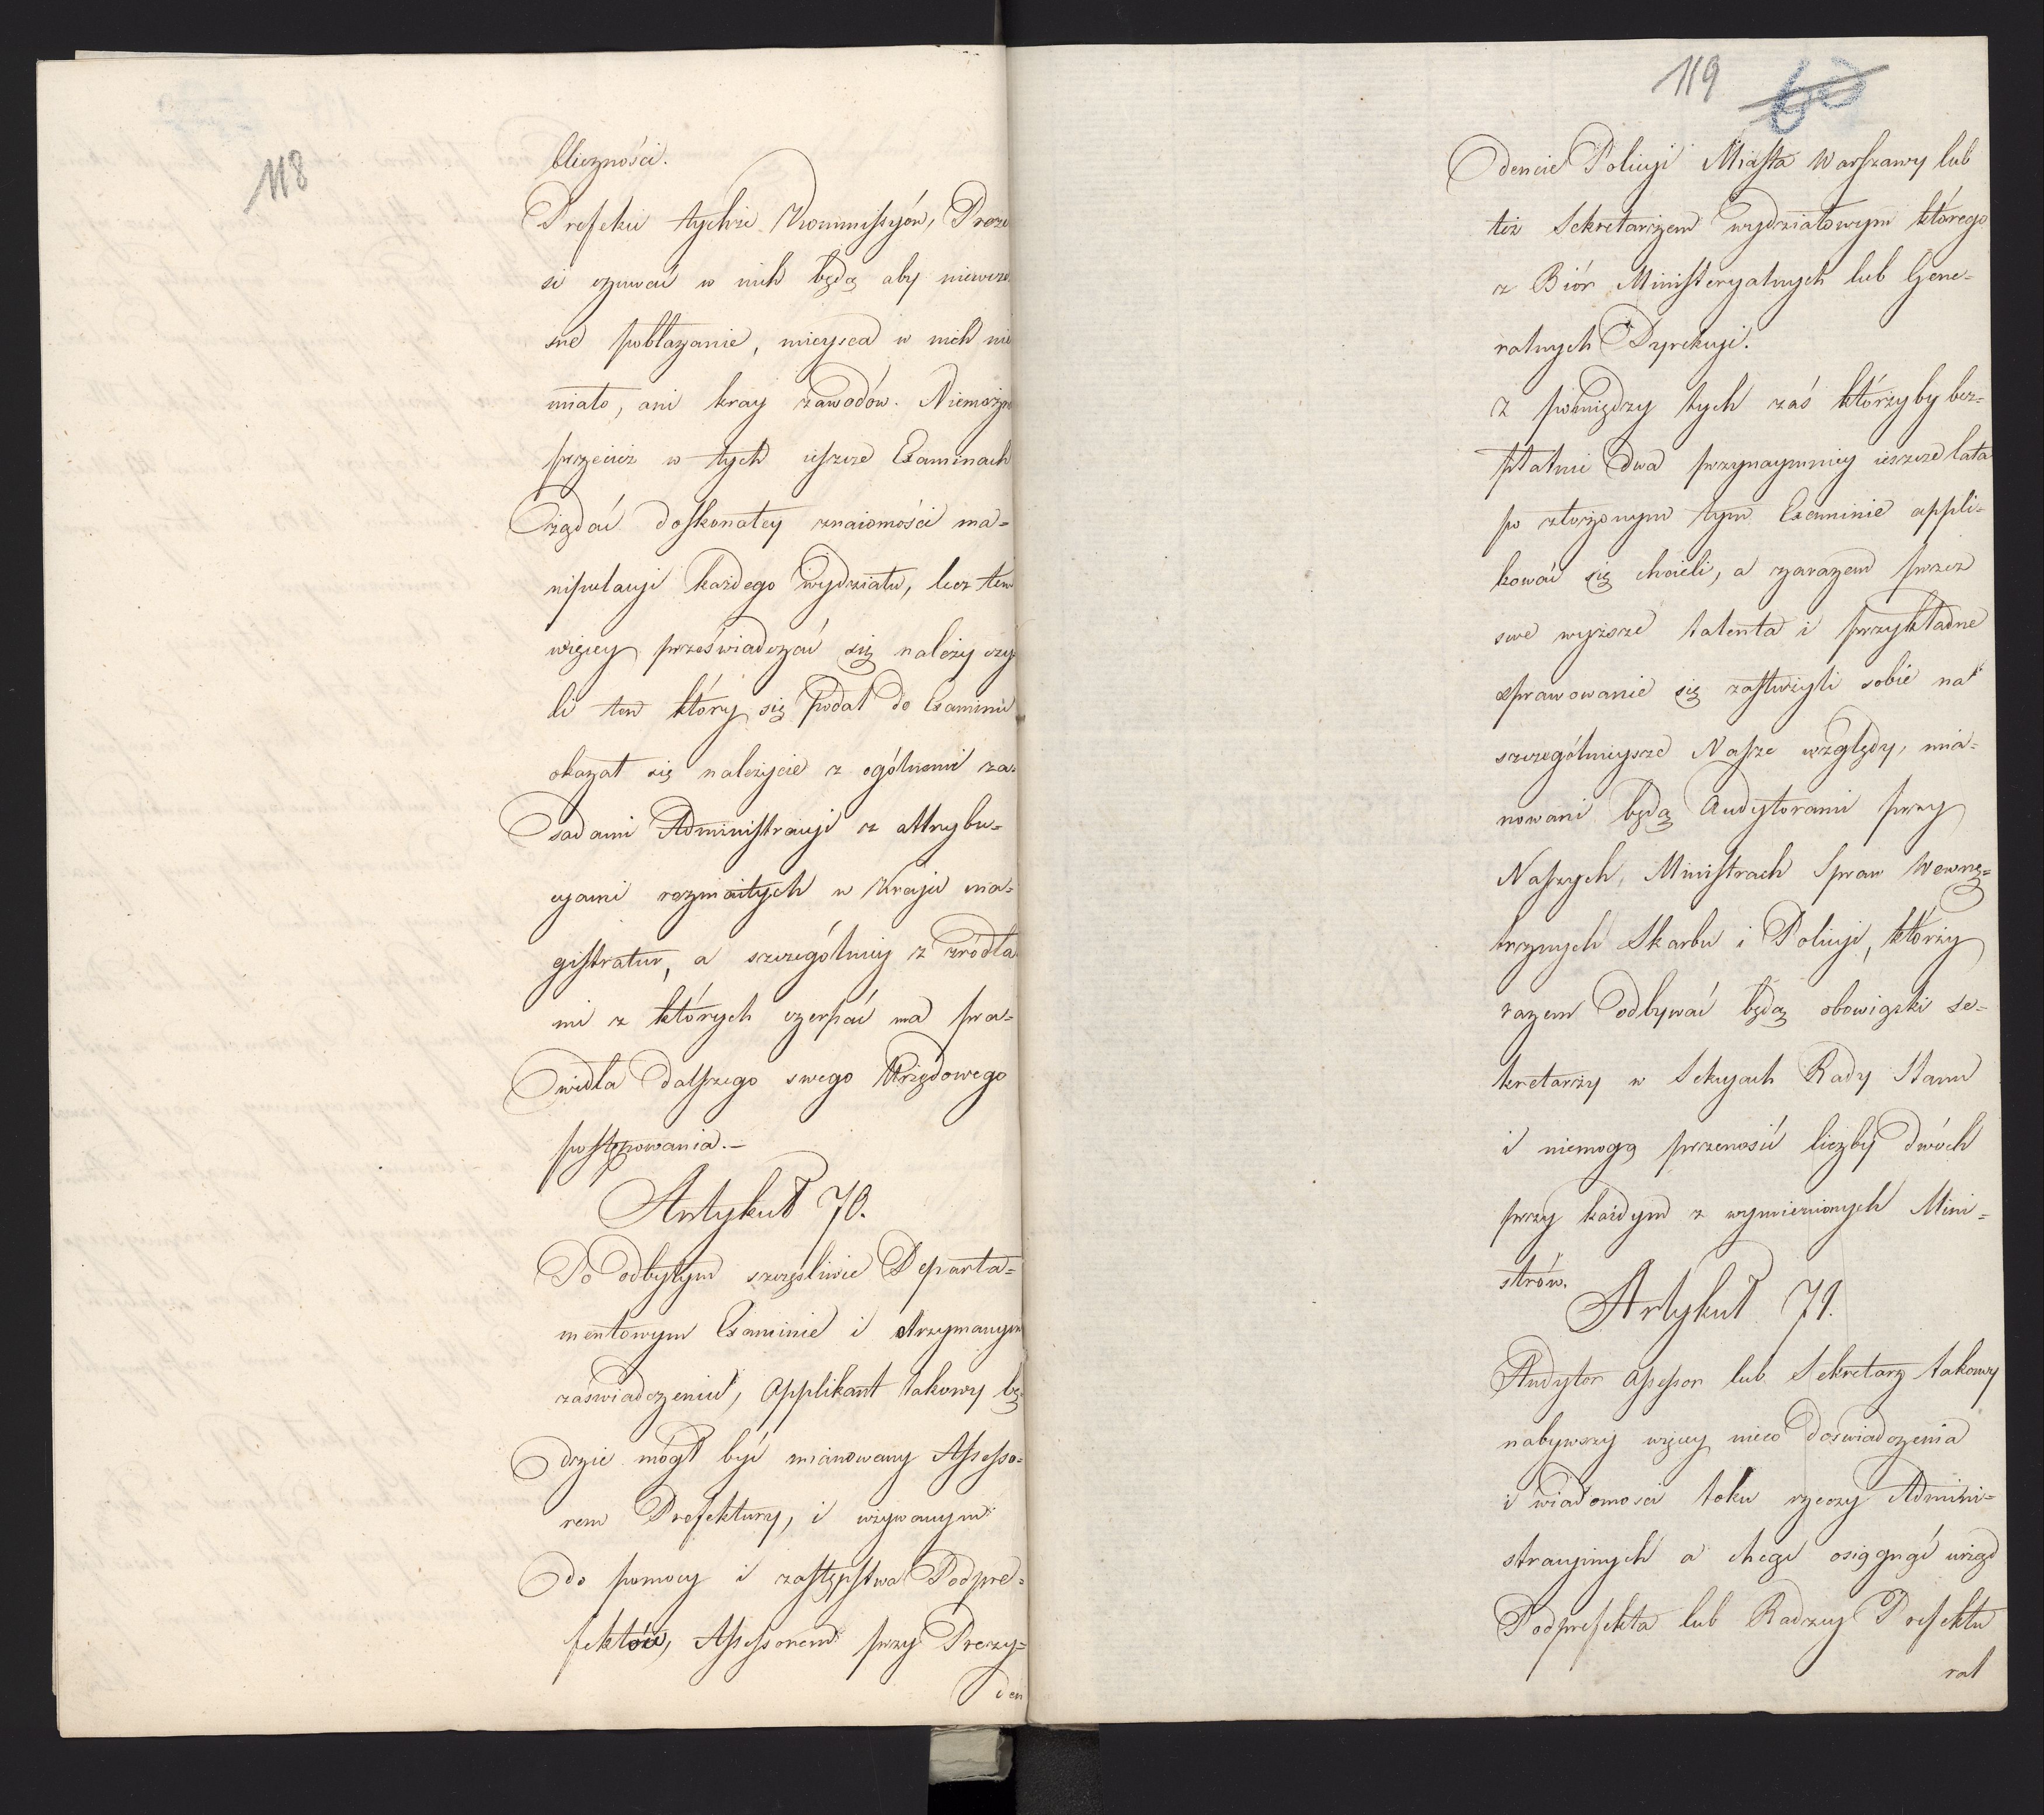 118
bliczności.
Prefekci tychże Kommissyów, Preze
si czuwać w nich będą aby niewcze
sne pobłażanie, mieysca w nich nie
miało, ani kray zawodów. Niemożna
przecież w tych ieszcze Examinach
żądać doskonałey znaiomości ma=
nipulacyi każdego wydziału, lecz tem
więcey przeświadczać się należy czy
li ten który się podał do Examinu
okazał się należycie z ogólnemi za=
sadami Administracyi z attrybu=
cyami rozmaitych w Kraju ma=
gistratur, a szczególniey z źródła
mi z których czerpać ma pra=
widła dalszego swego Urzędowego
postępowania.—
Artykuł 70.
Po odbytym szczęśliwie Departa=
mentowym Examinie i otrzymanym
zaświadczeniu, Applikant takowy bę
dzie mógł być mianowany Assesso=
rem Prefektury, i używanym
do pomocy i zastępstwa Podpre=
fektów, Assessorem przy Prezy=
den
119
60
dencie Policyi Miasta Warszawy lub
też Sekretarzem wydziałowym którego
z Biór Ministeryalnych lub Gene=
ralnych Dyrekcyi.
Z pomiędzy tych zaś którzyby bez=
płatnie dwa przynaymniey ieszcze lata
po złożonym tym Examinie appli=
kować się chcieli, a zarazem przez
swe wyższe talenta i przykładne
sprawowanie się zasłużyli sobie na
szczególnieysze Nasze względy, mia=
nowani będą Audytorami przy
Naszych Ministrach Spraw Wewnę=
trznych Skarbu i Policyi, którzy
razem odbywać będą obowiązki Se=
kretarzy w Sekcyach Rady Stanu
i niemogą przenosić liczby dwóch
przy każdym z wymienionych Mini=
strów.
Artykuł 71.
Audytor Assessor lub Sekretarz takowy
nabywszy więcey nieco doświadczenia
i wiadomości toku rzeczy Admini=
stracyinych a chcąc osiągnąć urząd
Podprefekta lub Radzcy Prefektu
ral